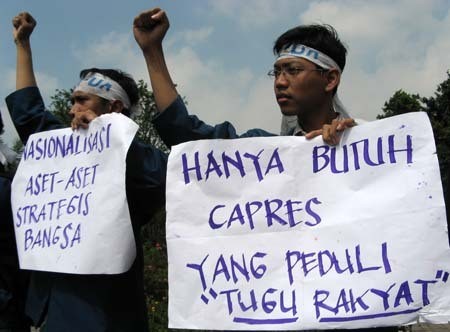 NASIONALISASI
ASET-ASET
STRATEGIS
BANGSA
HANYA BUTUH
CAPRES
YANG PEDULI
"TUGU RAKYAT"